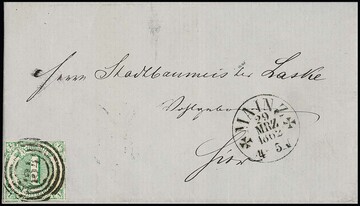 Herrn Stadtbaumeister Laske
Wohlgeboren
Hier
MAINZ
29
MRZ
1862
4-5